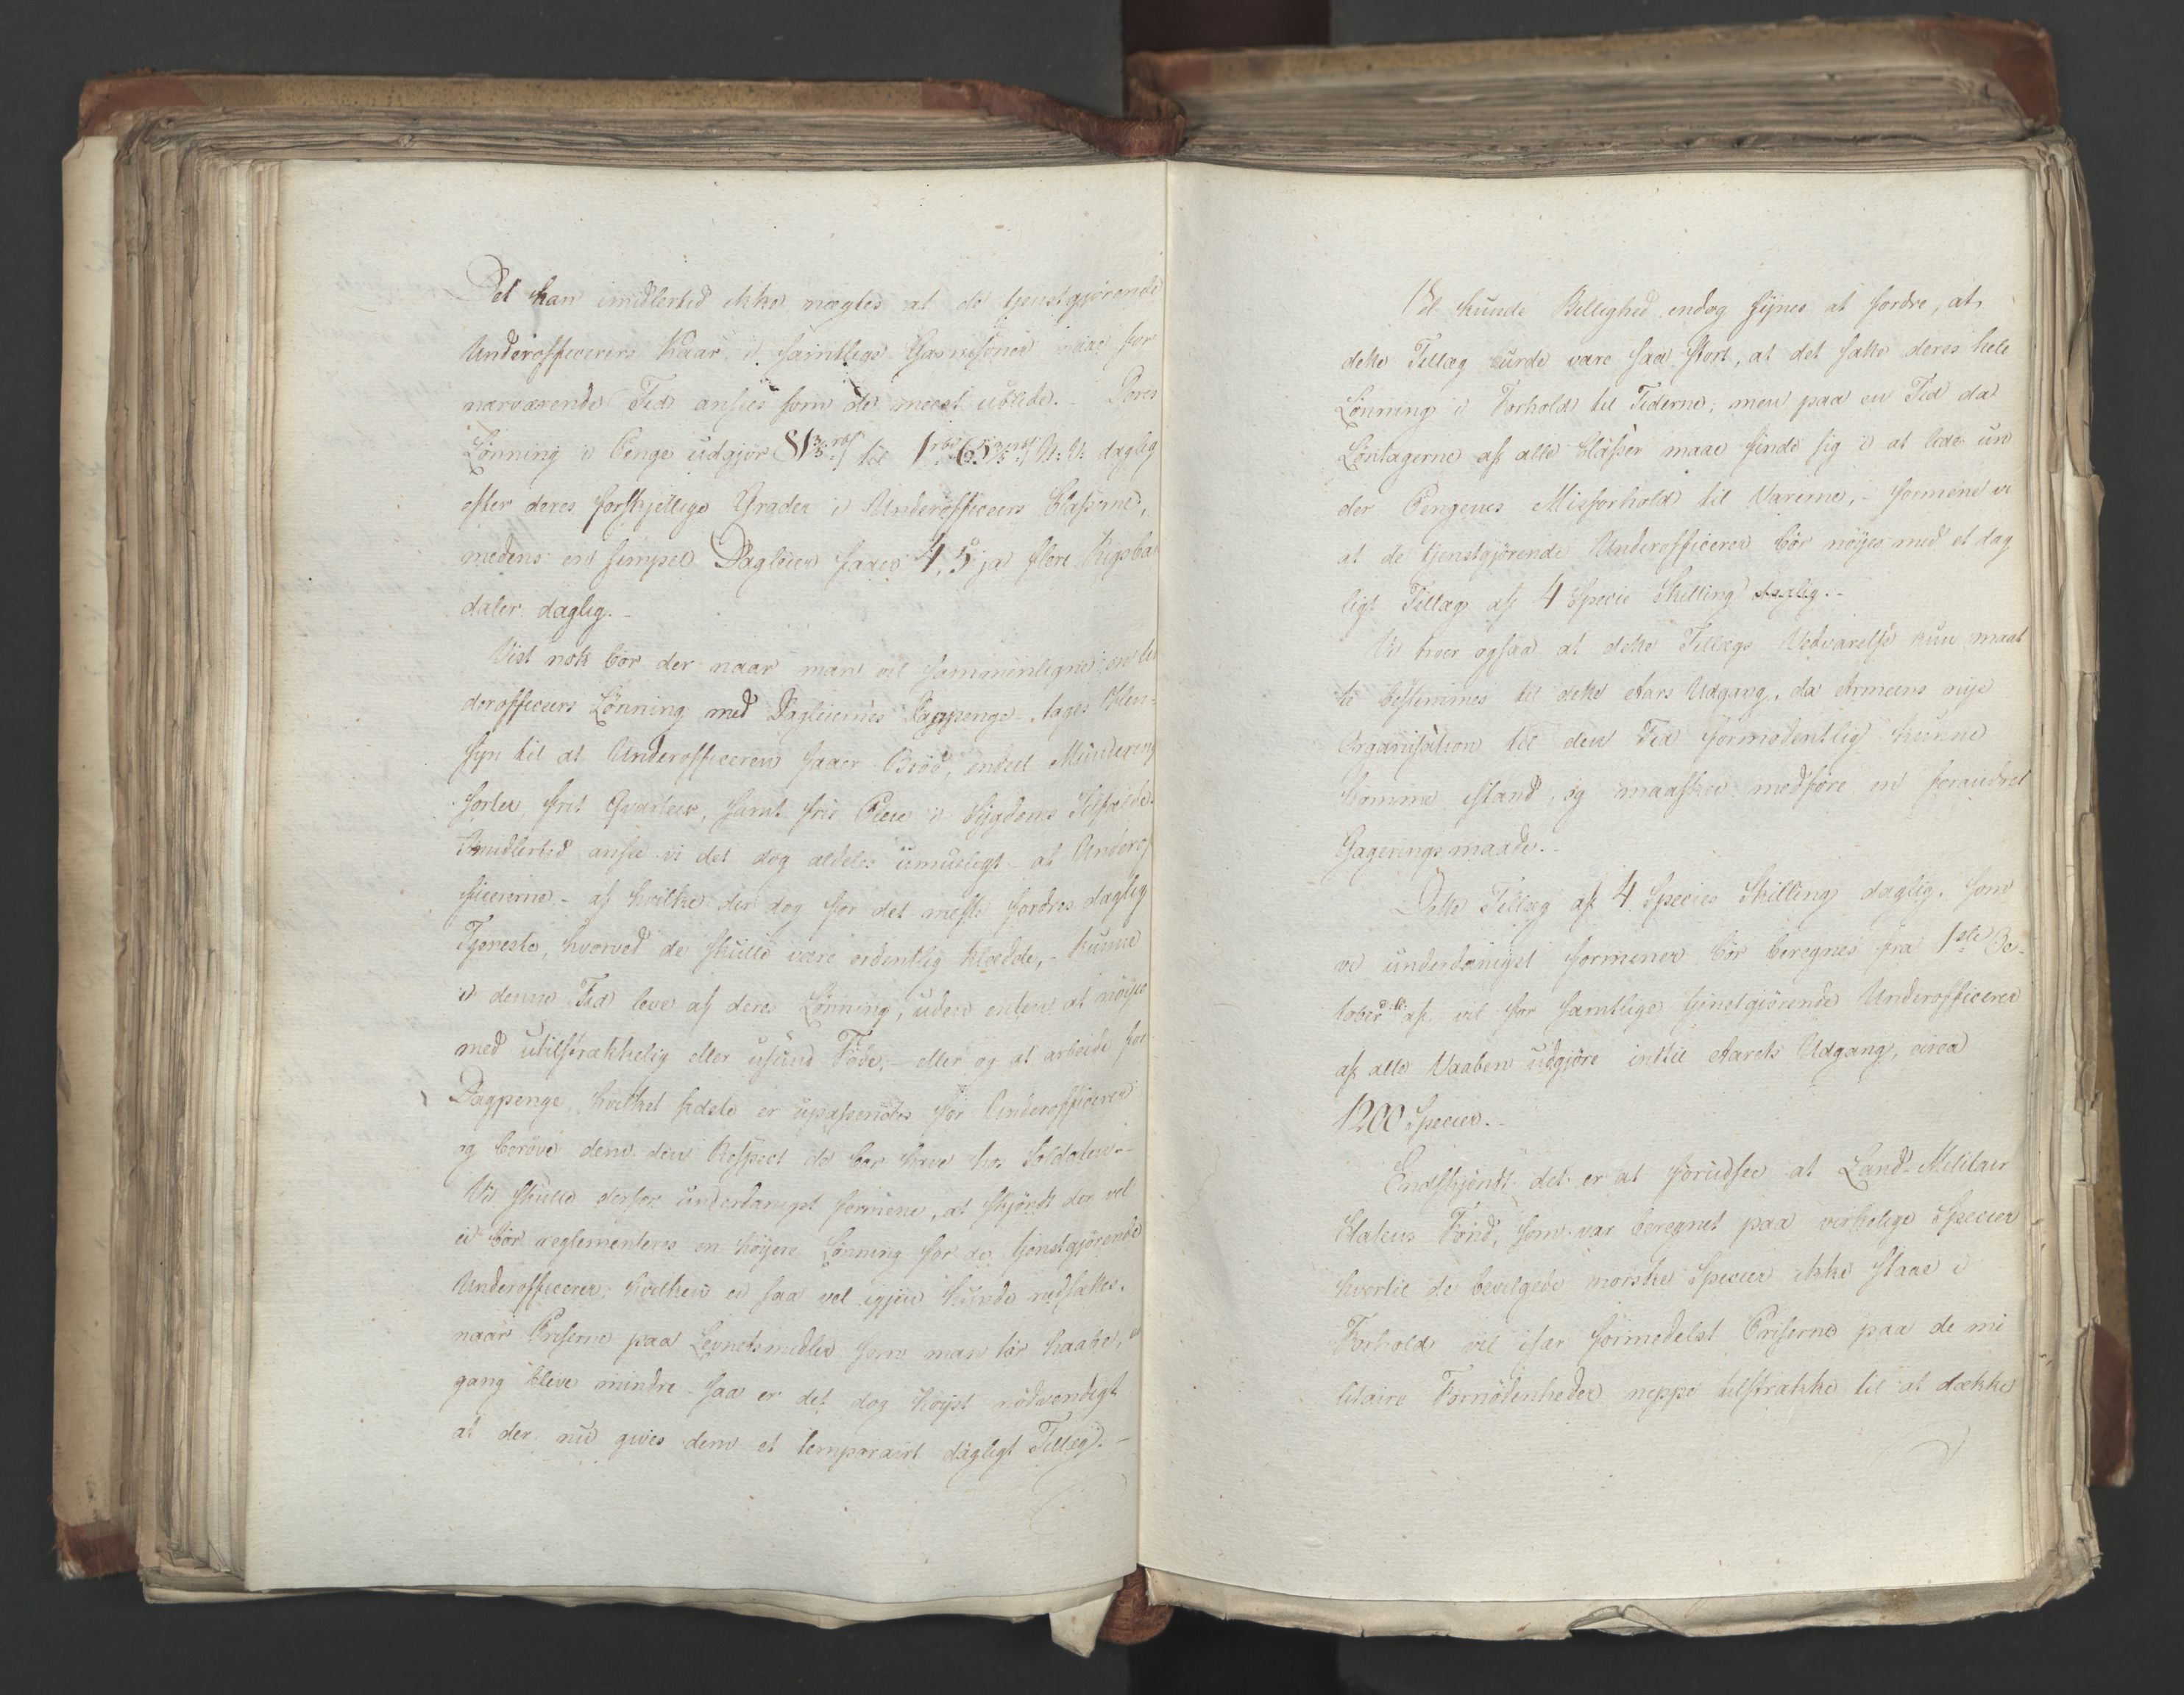 Det kan imidlertid ikke nægtes at de tjenstgjørende
Underofficerers Kaar i samtlige Garnisoner maae for
nærværende Tid ansees som de meest ublide. - Deres
Lønning i Penge udgjør 81 3/5 rbs til 1 rbd 65 3/5 rbs N: V: daglig
efter deres forskjellige Grader i Underofficeers Classerne,
medens en simpel Dagleier faaer 4, 5 ja flere Rigsba
daler daglig. -
Vist nok bør der naar man vil sammenligne en Un
derofficeers Lønning med Dagleiernes Dagpenge - tages Hen-
syn til at Underofficeren faaer Brød, endeel Mundering
sorter, frit Qvarteer, samt frie Pleie i Sygdoms Tilfælde.
Imidlertid ansee vi det dog aldeles umueligt at Underof
ficererne - af hvilke der dog for det meste fordres daglig
Tjeneste, hvorved de skulle være ordentlig klædte, - kunne
i denne Tid leve af deres Lønning, uden enten at nøyes
med utilstrækkelig eller usund Føde, - eller og at arbeide for
Dagpenge, hvilket sidste er upassendes for Underofficerer
og berøve dem den Respect de bør have hos Soldaten. -
Vi skulle derfor underdanigst formene, at skjøndt der vel
ei bør reglementeres en høyere Lønning for de tjenstgjørende
Underofficerer, hvilken ei saa vel igjen kunde nedsættes,
naar Priserne paa Levnetsmidler som man tør haabe, en
gang bleve mindre - saa er det dog høyst nødvendigt
at der nu gives dem et temporairt dagligt Tillæg. -
Vel kunde Billighed endog synes at fordre, at
dette Tillæg burde være saa stort, at det satte deres hele
Lønning i Forhold til Tiderne; men paa en Tid da
Løntagerne af alle Classer maae finde sig i at lide un
der Pengenes Misforhold til Varerne, - formene vi
at de tjenstgjørende Underofficerer bør nøyes med et dag
ligt Tillæg af 4 Specie Skilling daglig. -
Vi troer ogsaa at dette Tillægs Vedvarelse kun maat
te bestemmes til dette Aars Udgang, da Armeens nye
Organisation til den Tid formodentlig kunne
komme istand, og maaskee medføre en forandret
Gageringsmaade. -
Dette Tillæg af 4 Species Skilling daglig, som
vi underdanigst formener bør beregnes fra 1ste Oc-
tober d: A: af, vil for samtlige tjenstgjørende Underofficerer
af alle Vaaben udgjøre indtil Aarets Udgang, circa
1200 Species. -
Endskjøndt det er at forudsee at Land-Militair
Etatens Fond, som var beregnet paa virkelige Species
hvortil de bevilgede norske Species ikke staae i
Forhold, vil især formedelst Priserne paa de mi
litaire Fornødenheder neppe tilstrække til at dække